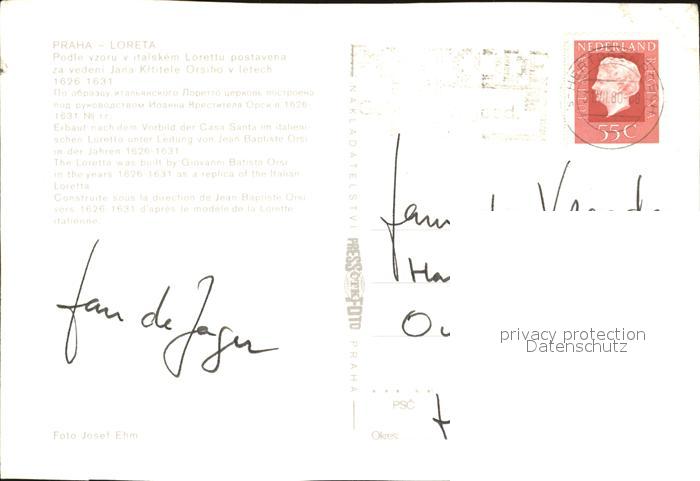 PRAHA – LORETA
Podle vzoru v italském Lorettu postavena
za vedení Jana Křtitele Orsiho v letech
1626 1631
По образцу итальянского Лоретто церковь построена
под руководством Иоанна Крестителя Орси в 1626
1631 гг.
Erbaut nach dem Vorbild der Casa Santa im italieni-
schen Loretto unter Leitung von Jean Baptiste Orsi
in der Jahren 1626-1631
The Loretta was built by Giovanni Batista Orsi
in the years 1626-1631 as a replica of the Italian
Loretta
Construite sous la direction de Jean Baptiste Orsi
vers 1626-1631 d'après le modèle de la Lorette
italienne.
Jan de Jager
Foto Josef Ehm
NAKLADATELSTVÍ PRESSFOTO PRAHA
ČTK
NEDERLAND
JULIANA REGINA
55C
de
Ha
PSČ
Okres:
privacy protection
Datenschutz